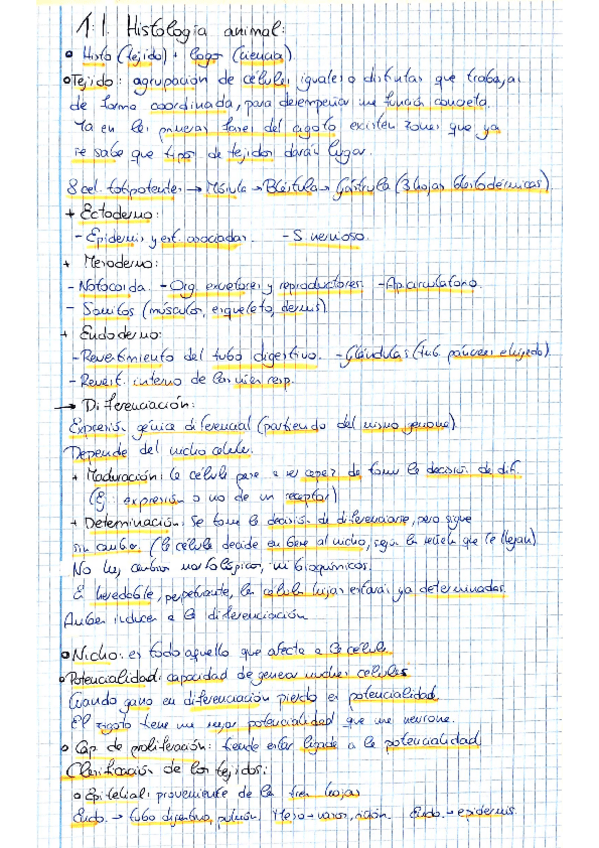 1.1. Histología animal:
• Histo (tejido) + logos (ciencia).
• Tejido: agrupación de células iguales o distintas que trabajan
de forma coordinada, para desempeñar una función concreta.
Ya en las primeras fases del cigoto existen zonas que ya
se sabe que tipos de tejidos darán lugar.
8 cel. totipotentes → Mórula → Blástula → Gástrula (3 hojas blastodérmicas)
+ Ectodermo:
- Epidermis y est. asociadas. - S. nervioso.
+ Mesodermo:
- Notocorda. - Org. excretores y reproductores. - Ap. circulatorio.
- Somitos (músculos, esqueleto, dermis)
+ Endodermo:
- Revestimiento del tubo digestivo. - Glándulas (
- Revest. interno de las vías resp.
→ Diferenciación:
Expresión génica diferencial (partiendo del mismo genoma).
Depende del nicho celular.
+ Maduración: la célula pasa a ser capaz de tomar la decisión de dif.
(Ej: expresión o no de un receptor)
+ Determinación: Se toma la decisión de diferenciarse, pero sigue
sin cambiar (la célula decide en base al nicho, según la señal que le llegan)
No hay cambios morfológicos, ni bioquímicos.
Es heredable, perpetuante, las células hijas estarán ya determinadas.
Ambas inducen a la diferenciación
• Nicho: es todo aquello que afecta a la célula
• Potencialidad: capacidad de generar muchas células
Cuando gano en diferenciación pierdo en potencialidad.
El zigoto tiene una mayor potencialidad que una neurona.
• Cap de proliferación: tiende estar ligada a la potencialidad
Clasificación de los tejidos:
• Epitelial: proveniente de las tres hojas
Endo. → tubo digestivo, pulmón. Meso → vasos, riñón. → epidermis.